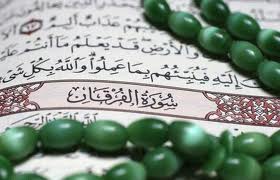 عَذَابٌ أَلِيمٌ
وَالْأَرْضِ قَدْ يَعْلَمُ مَا أَنتُمْ
إِلَيْهِ فَيُنَبِّئُهُم بِمَا عَمِلُوا وَاللَّهُ بِكُلِّ
سُورَةُ الْفُرْقَانِ